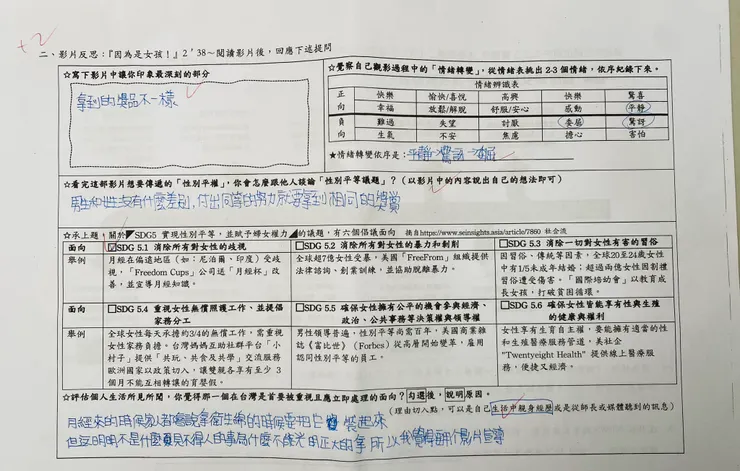 +2
二、影片反思:『因為是女孩!』2’38～閱讀影片後，回應下述提問
☆寫下影片中讓你印象最深刻的部分
拿到的獎品不一樣
☆覺察自己觀影過程中的「情緒轉變」，從情緒表挑出 2-3 個情緒，依序紀錄下來。
情緒辨識表
正向 快樂 愉快/喜悅 高興 快樂 驚喜
幸福 放鬆/解脫 舒服/安心 感動 平靜
負向 難過 失望 討厭 委屈 驚訝
生氣 不安 焦慮 擔心 害怕
★情緒轉變依序是：平靜→驚訝→委屈
☆看完這部影片想要傳遞的「性別平權」，你會怎麼跟他人談論「性別平等議題」？(以影片中的內容說出自己的想法即可)
付出同等的努力就要拿到相同的獎賞
☆承上題，關於◤SDG5 實現性別平等，並賦予婦女權力◢的議題，有六個倡議面向 摘自https://www.seinsights.asia/article/7860 社企流
面向 ☑SDG 5.1 消除所有對女性的歧視 □SDG 5.2 消除所有對女性的暴力和剝削 □SDG 5.3 消除一切對女性有害的習俗
舉例 月經在偏遠地區（如：尼泊爾、印度）受歧視，「Freedom Cups」公司送「月經杯」改善，並宣導月經知識。
全球超7億女性受暴，美國「FreeFrom」組織提供法律諮詢、創業訓練，並協助脫離暴力。
因習俗、傳統等因素，全球20至24歲女性中有1/5未成年結婚；超過兩億女性因割禮習俗遭受傷害。「國際培幼會」以教育成長女孩，打破貧困循環。
面向 □SDG 5.4 重視女性無償照護工作、並提倡家務分工 □SDG 5.5 確保女性擁有公平的機會參與經濟、政治、公共事務等決策權與領導權 □SDG 5.6 確保女性皆能享有性與生殖的健康與權利
舉例 全球女性每天承擔約3/4的無償工作，需重視女性家務負擔。台灣媽媽互助社群平台「小村子」提供「共玩、共食及共學」交流服務
歐洲國家以政策切入，讓雙親各享有至少 3 個月不能互相轉讓的育嬰假。
男性領導普遍，性別平等尚需百年，美國商業雜誌《富比世》(Forbes) 從高層開始變革，雇用認同性別平等的員工。
女性享有生育自主權，要能擁有適當的性和生殖醫療服務管道，美社企"Twentyeight Health" 提供線上醫療服務，便捷又經濟。
☆評估個人生活所見所聞，你覺得那一個在台灣是首要被重視且應立即處理的面向？勾選後，說明原因。
(理由切入點，可以是自己生活中親身經歷或是從師長或媒體聽到的訊息)
月經來的時候 衛生棉的時候要把它 裝起來
但 明明不是什麼 見不得人的事為什麼不能光明正大的拿 所以我覺得